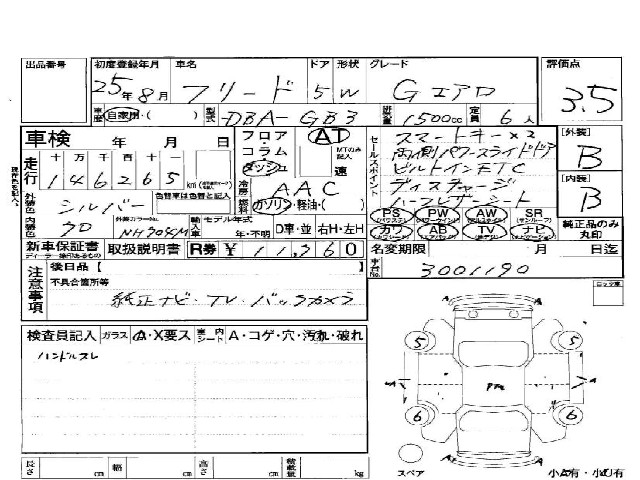 出品番号 初度登録年月 車名 ドア 形状 グレード 評価点
25年8月 フリード 5 W Gエアロ 3.5
車歴 自家用・( ) 型式 DBA-GB3 排気量 1500cc 定員 6人
車検 年 月 日
フロア コラム ダッシュ AT MTのみ記入 速
セールスポイント スマートキー×2
両側パワースライドドア
ビルトインETC
ディスチャージ
ハーフレザーシート
[外装] B
[内装] B
走行 十万千百十一
146265 km
外装色 シルバー 色替車は色替と記入
冷房 AAC
燃料 ガソリン・軽油・( )
内装色 外装カラーNo. NH704M 輸入車 モデル年式 年・不明 D車・並 右H・左H
PS PW AW SR
カワ AB TV ナビ
純正品のみ丸印
新車保証書 取扱説明書 R券 ¥11,360
名変期限 月 日迄
車台No. 3001190
注意事項 後日品【 】
不具合箇所等
純正ナビ・TV・バックカメラ
検査員記入 ガラス A・X要ス 室内シート A・コゲ・穴・汚れ・破れ
ハンドルスレ
5 5
6 6
A
スペア
長さ cm 幅 cm 高さ cm 積載量 kg
小A有・小U有